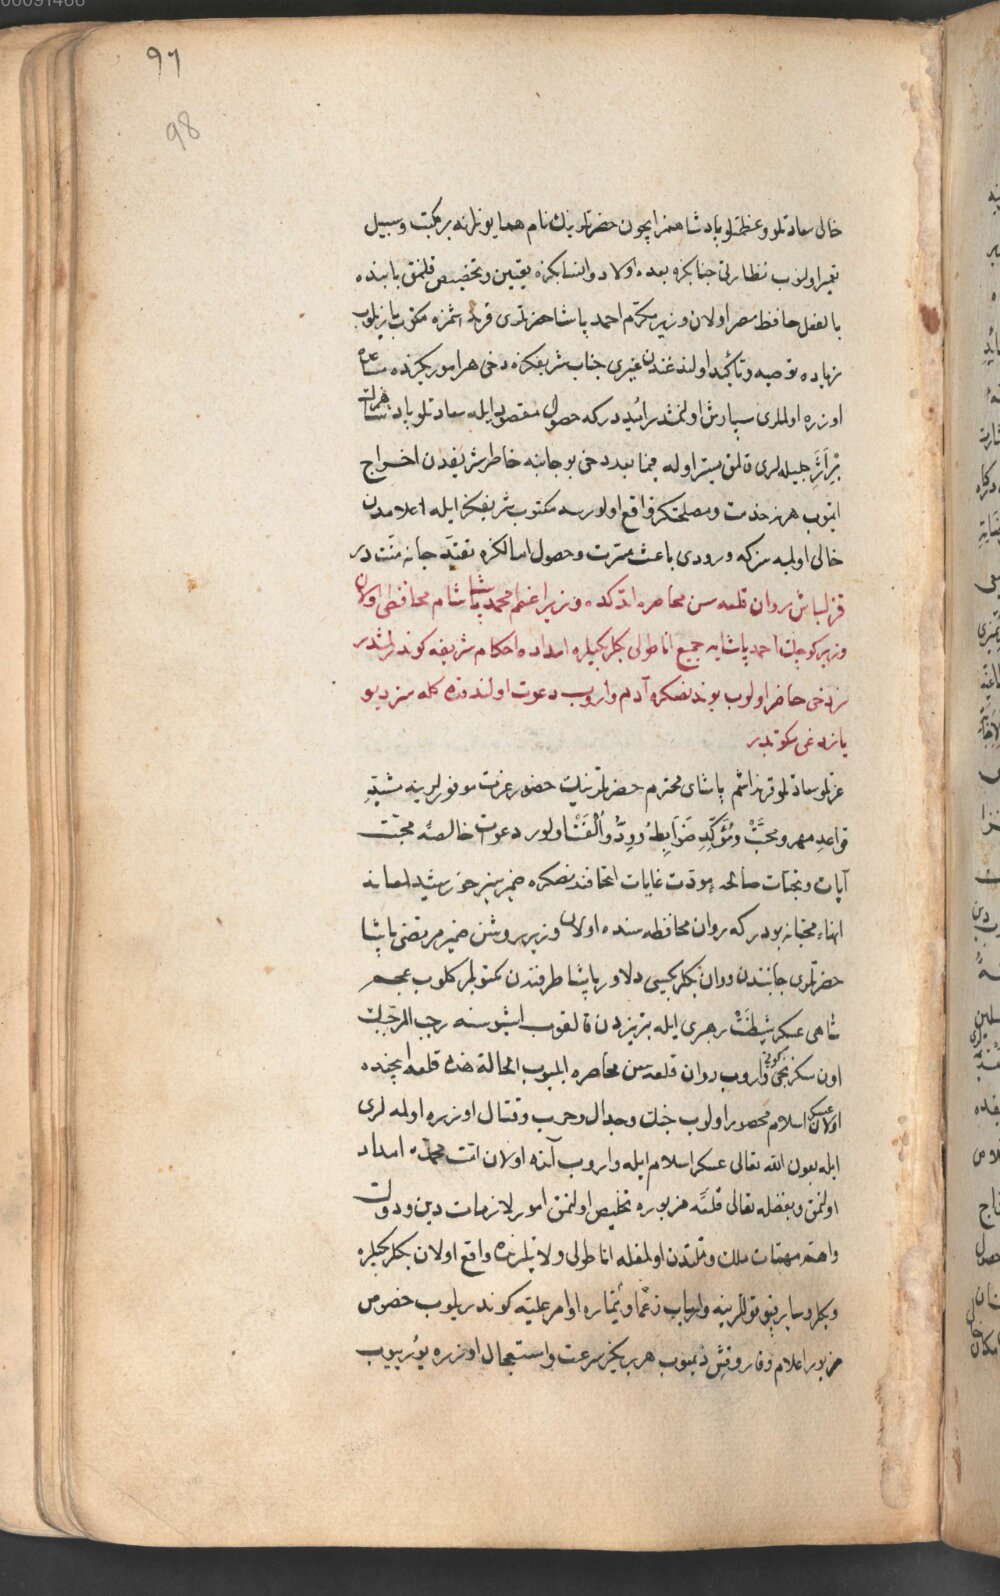 00091466
٩٦
98
خالی سعادتلو وعظمتلو پادشاهمز ایچون حضرتلرینك نام همایونلرنه بر مکتب وسبیل
تعمیر اولنوب نظارتی جنابکزه بعده اولاد وانسابکزه تعیین وتخصیص قلنمق بابنده
بالفعل حافظ مصر اولان وزیر مکرم احمد پاشا حضرتلری قرنداشمزه مکتوب یازیلوب
زیاده توصیه وتأکید اولندغندن غیری جناب شریفکزه دخی هر امورکزده مساعده
اوزره اولملری سپارش اولنمشدر امیددر که حصول مقصود ایله سعادتلو پادشاه
جلیله لری قالمق میسر اوله فیما بعد دخی بو جانبه خاطر شریفدن اخراج
ایتمیوب هر نه خدمت ومصلحتکز واقع اولورسه مکتوب شریفکز ایله اعلامدن
خالی اولمیه سز که ورودی باعث مسرت وحصول آمالکزه تقید جانه منتدر
قزلباش روان قلعه سن محاصره اتدکده وزیر اعظم محمد پاشا شام محافظی اولان
وزیر کوچك احمد پاشایه جمیع اناطولی بکلربکیلره امداده احکام شریفه کوندرلمشدر
سز دخی حاضر اولوب بوندنصکره آدم واروب دعوت اولندقده کله سز دیو
یازدغی مکتوبدر
عزتلو سعادتلو قرنداشم پاشای محترم حضرتلرینك حضور عزت موفورلرینه مشید
قواعد مهر ومحبت ومؤکد ضوابط ود والفت اولور دعوات خالصه محبت
آیات وتحیات صالحه مودت غایات اتحافندنصکره ضمیر منیر خورشید لمعانه
انهاء محبانه بودر که روان محافظه سنده اولان وزیر روشن ضمیر مرتضی پاشا
حضرتلری جانبندن وروان بکلربکیسی دلاور پاشا طرفندن مکتوبلر کلوب عجم
شاهی عسکر شیطنت رهبری ایله تبریزدن قالقوب اشبو سنه رجب المرجبك
اون سکزنجی کونی واروب روان قلعه سن محاصره ایلیوب الحالة هذه قلعه ایچنده
اولان عسکر اسلام محصور اولوب جنك وجدال وحرب وقتال اوزره اولمه لری
ایله بعون الله تعالی عسکر اسلام ایله واروب آنده اولان امت محمده امداد
اولنمق وبفضله تعالی قلعه مزبوره تخلیص اولنمق امور لازمات دین ودولت
واهم مهمات ملك وملتدن اولمغله اناطولی ولایتلرنده واقع اولان بکلربکیلره
وبکلره وسایر قپو قوللرینه وارباب زعما وتیماره اوامر علیه کوندریلوب خصوص
مزبور اعلام وقار وقیش دیمیوب هر بریکز سرعت واستعجال اوزره یوریوب